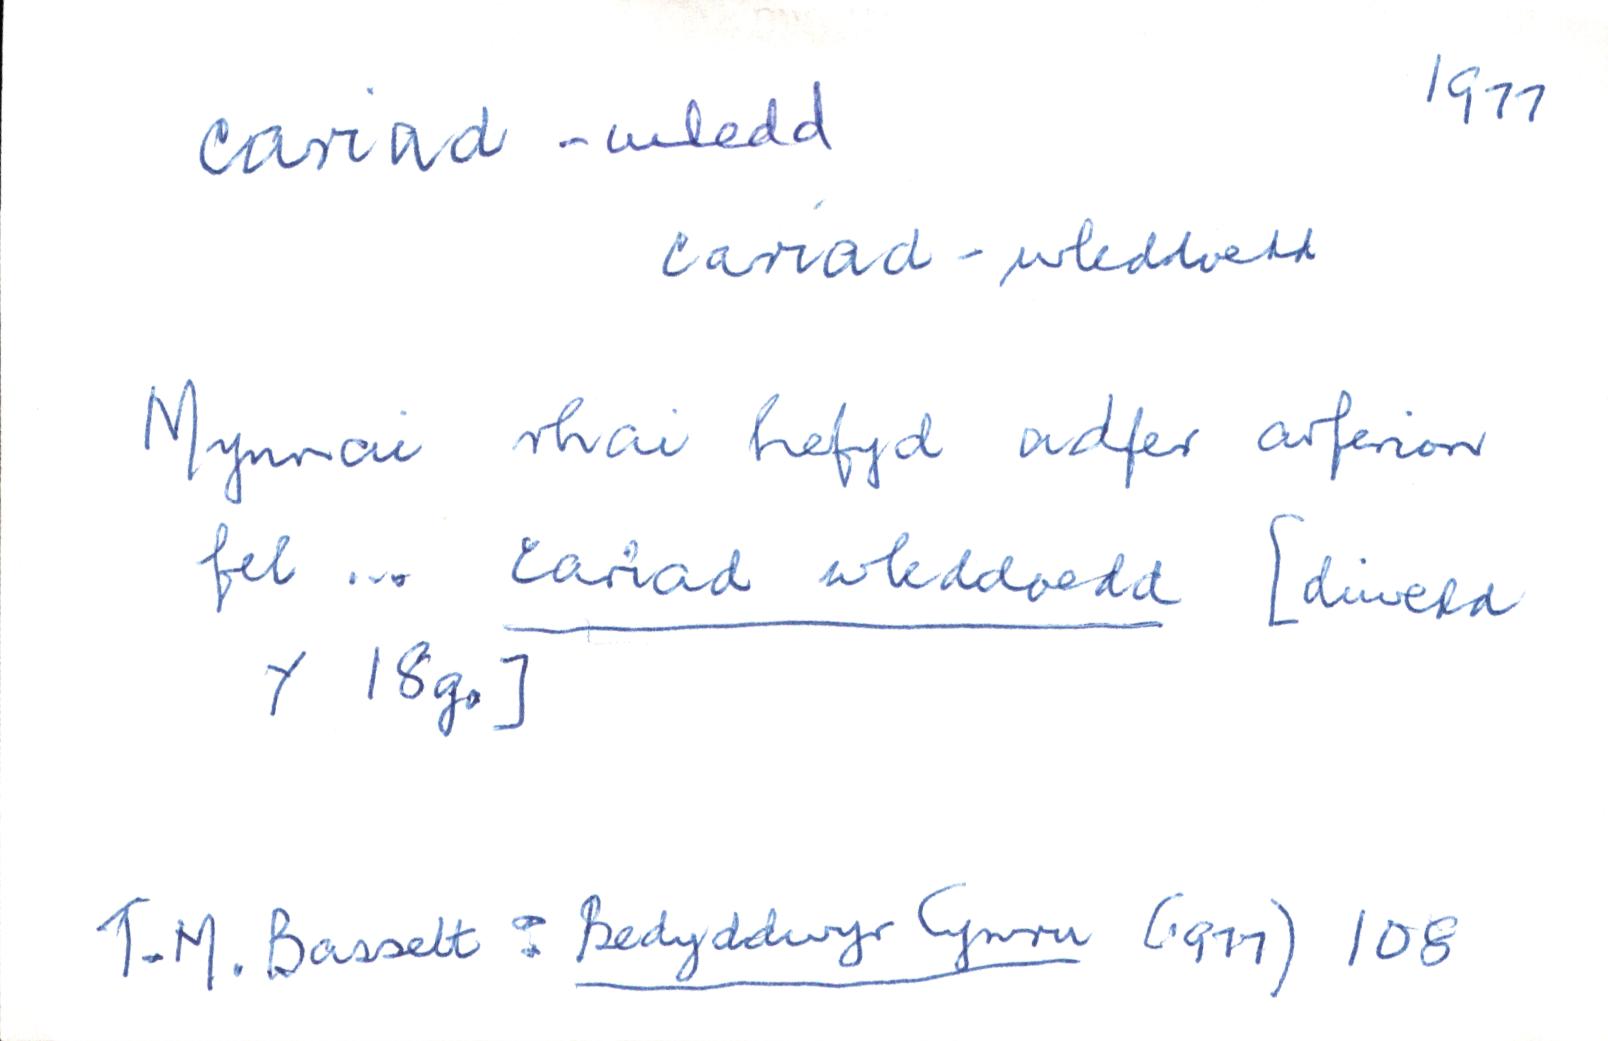 1977
cariad-wledd
cariad-wleddoedd
Mynnai rhai hefyd adfer arferion
fel ... cariad wleddoedd [diwedd
y 18g.]
T.M. Bassett : Bedyddwyr Cymru (1977) 108